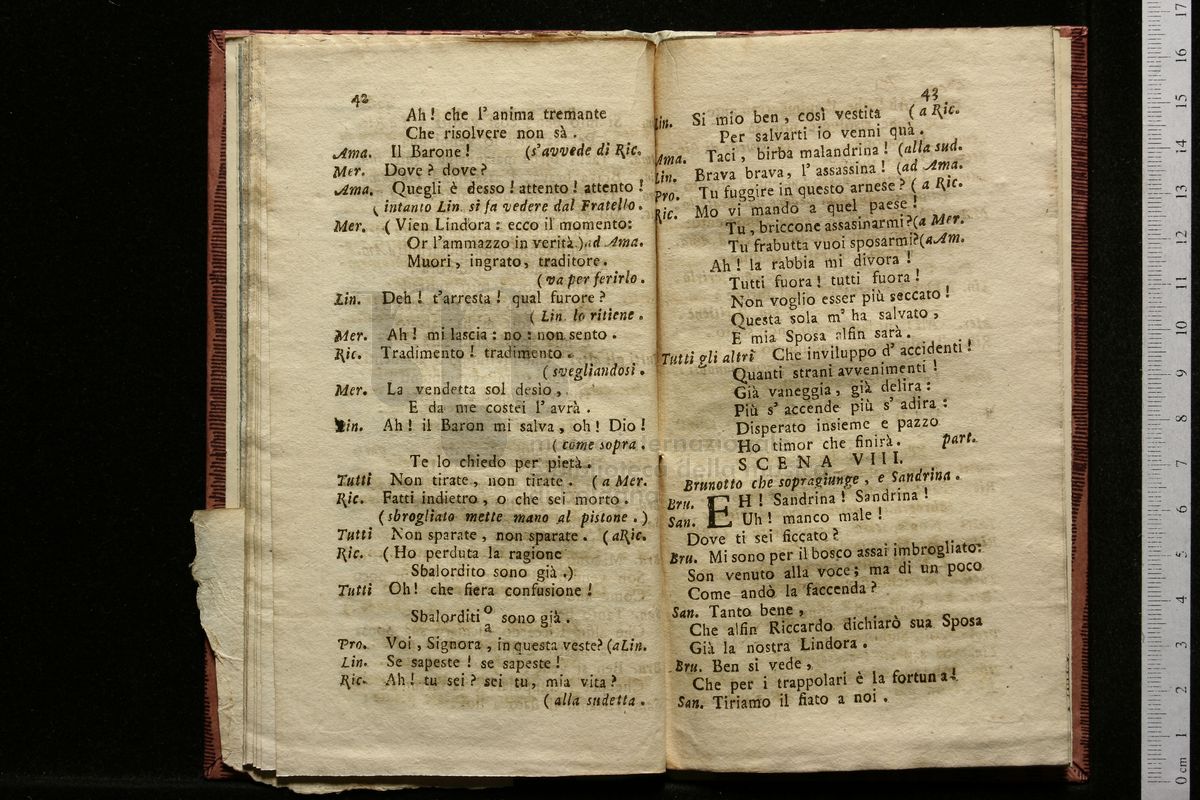 42
Ah! che l'anima tremante
Che risolvere non sà.
Ama. Il Barone! (s'avvede di Ric.
Mer. Dove? dove?
Ama. Quegli è desso! attento! attento!
(intanto Lin. si fa vedere dal Fratello.
Mer. (Vien Lindora: ecco il momento:
Or l'ammazzo in verità.) ad Ama.
Muori, ingrato, traditore.
(va per ferirlo.
Lin. Deh! t'arresta! qual furore?
(Lin. lo ritiene.
Mer. Ah! mi lascia: no: non sento.
Ric. Tradimento! tradimento.
(svegliandosi.
Mer. La vendetta sol desìo,
E da me costei l'avrà.
Lin. Ah! il Baron mi salva, oh! Dio!
(come sopra.
Te lo chiedo per pietà.
Tutti Non tirate, non tirate. (a Mer.
Ric. Fatti indietro, o che sei morto.
(sbrogliato mette mano al pistone.)
Tutti Non sparate, non sparate. (a Ric.
Ric. (Ho perduta la ragione
Sbalordito sono già.)
Tutti Oh! che fiera confusione!
Sbalorditi o/a sono già.
Pro. Voi, Signora, in questa veste? (a Lin.
Lin. Se sapeste! se sapeste!
Ric. Ah! tu sei? sei tu, mia vita?
(alla sudetta.
43
Lin. Si mio ben, così vestita (a Ric.
Per salvarti io venni quà.
Ama. Taci, birba malandrina! (alla sud.
Lin. Brava brava, l'assassina! (ad Ama.
Pro. Tu fuggire in questo arnese? (a Ric.
Ric. Mo vi mando a quel paese!
Tu, briccone assasinarmi? (a Mer.
Tu frabutta vuoi sposarmi? (a Am.
Ah! la rabbia mi divora!
Tutti fuora! tutti fuora!
Non voglio esser più seccato!
Questa sola m'ha salvato,
E mia Sposa alfin sarà.
Tutti gli altri Che inviluppo d'accidenti!
Quanti strani avvenimenti!
Già vaneggia, già delira:
Più s'accende più s'adira:
Disperato insieme e pazzo
Ho timor che finirà. part.
SCENA VIII.
Brunotto che sopragiunge, e Sandrina.
Bru. EH! Sandrina! Sandrina!
San. Uh! manco male!
Dove ti sei ficcato?
Bru. Mi sono per il bosco assai imbrogliato:
Son venuto alla voce; ma di un poco
Come andò la faccenda?
San. Tanto bene,
Che alfin Riccardo dichiarò sua Sposa
Già la nostra Lindora.
Bru. Ben si vede,
Che per i trappolari è la fortuna!
San. Tiriamo il fiato a noi.